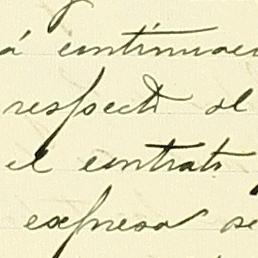 á continuaci
respecto al
el contrato
expresa se